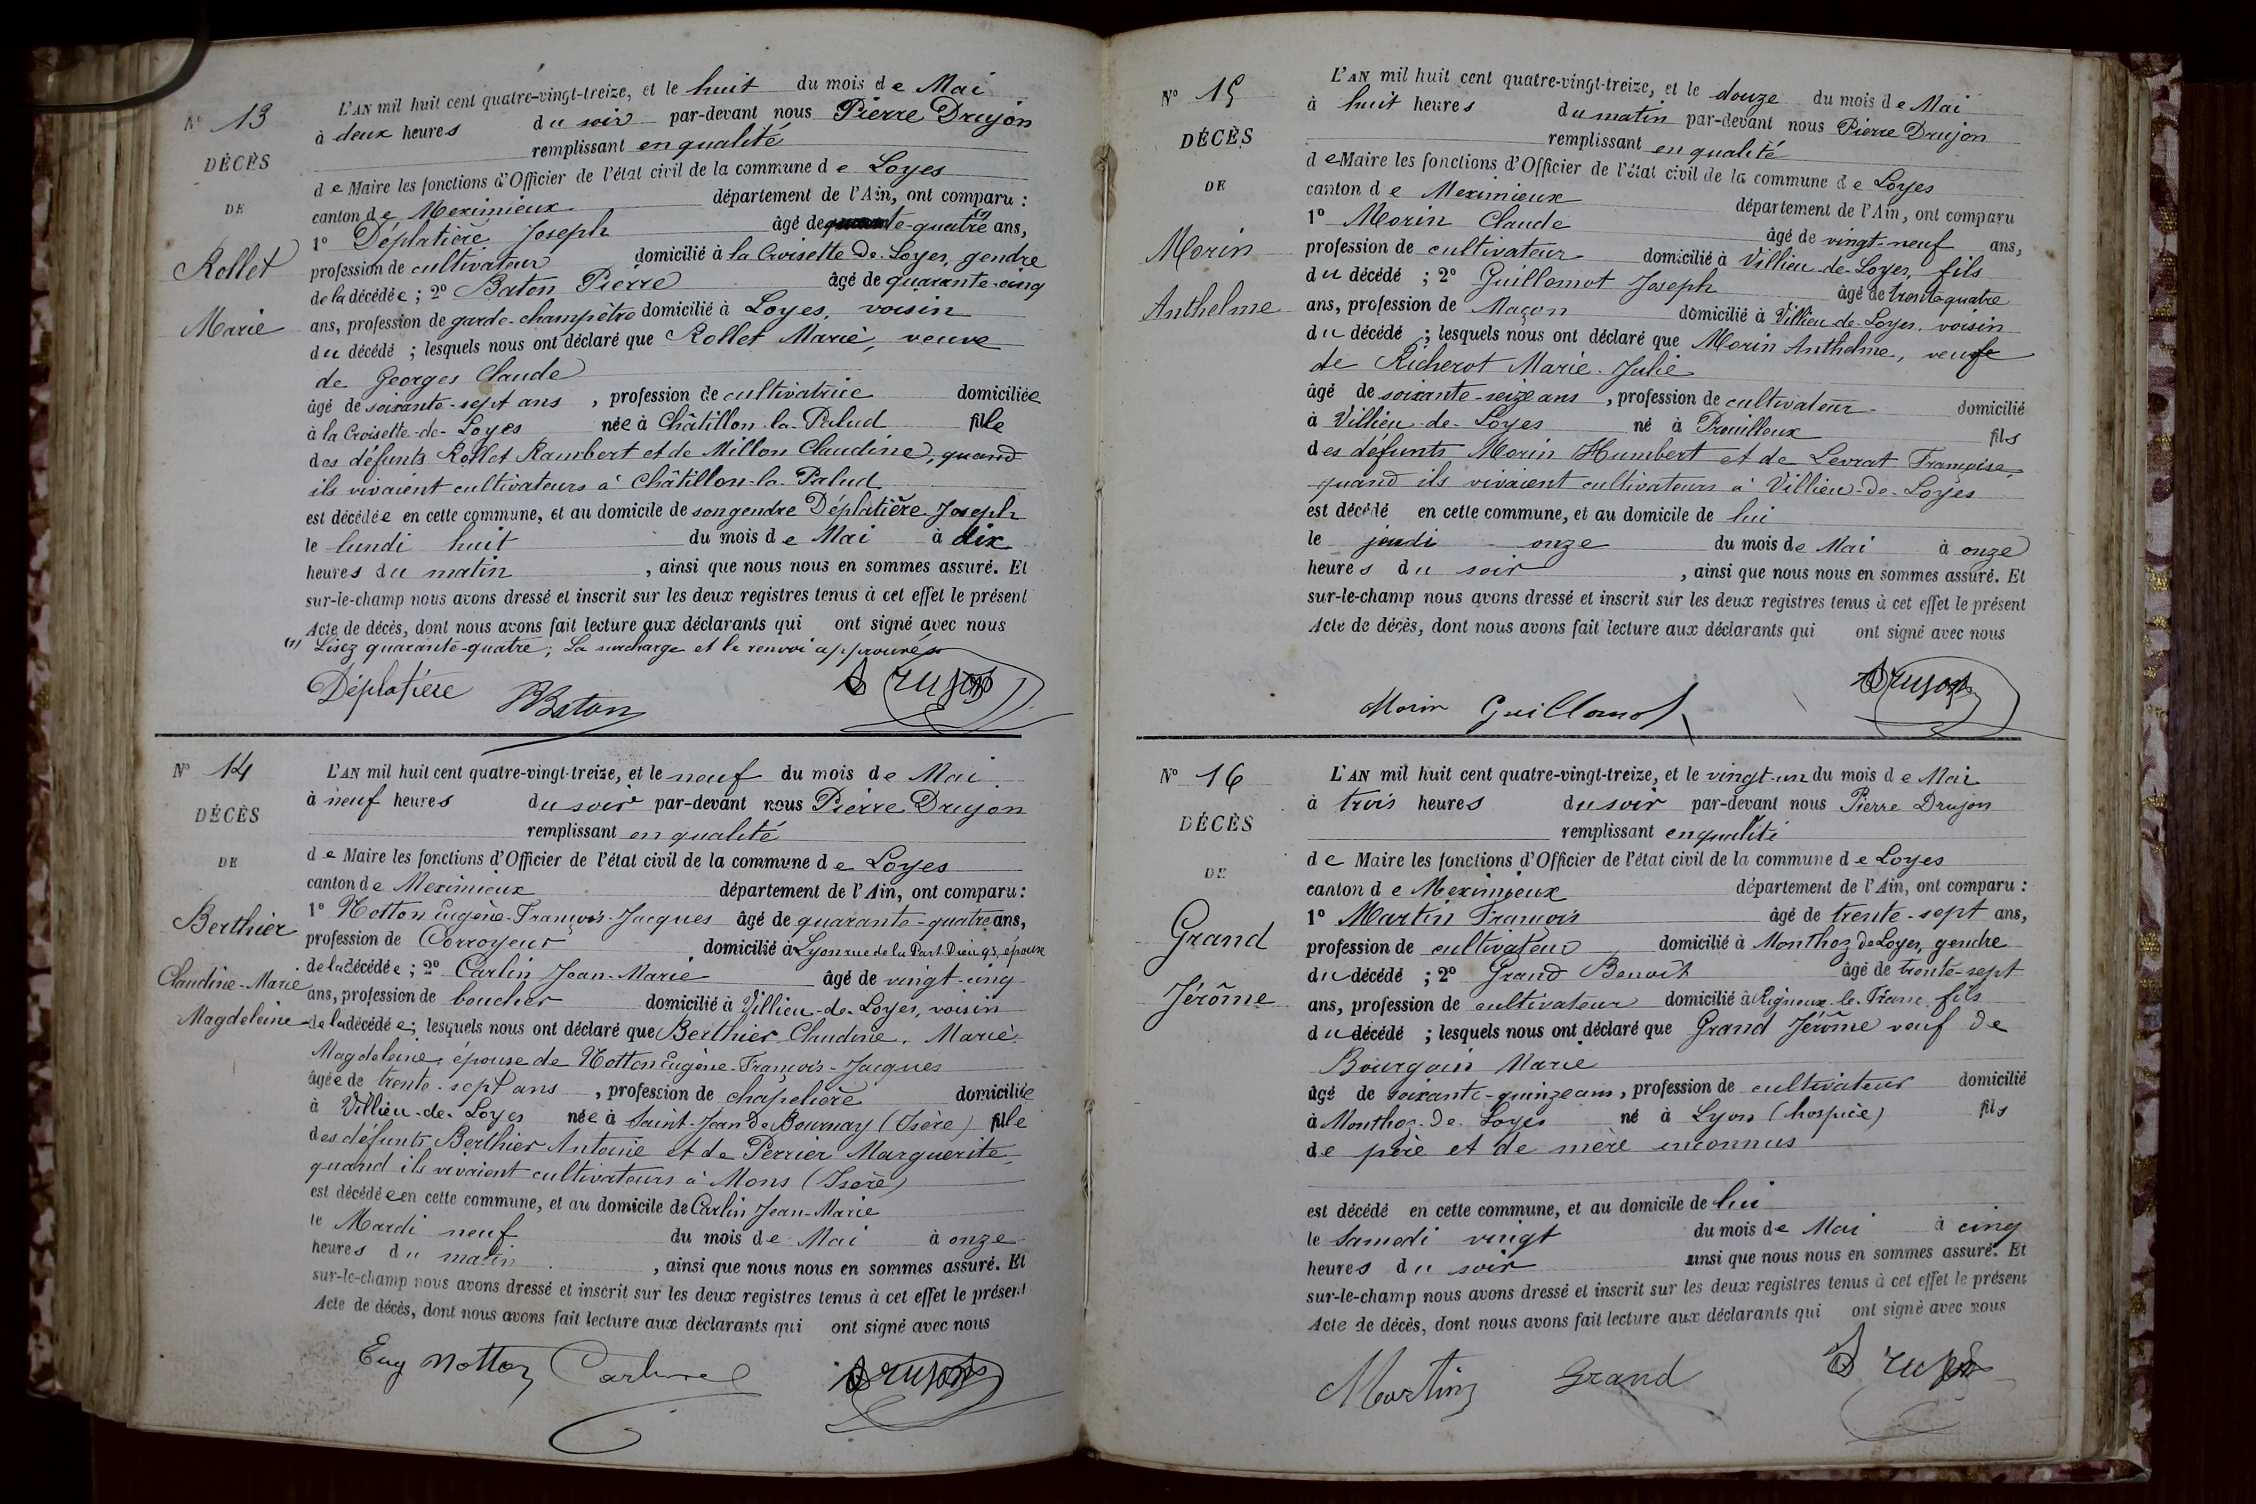 N° 13
DÉCÈS
DE
Rollet
Marie
L'AN mil huit cent quatre-vingt-treize, et le huit du mois de Mai
à deux heures du soir par-devant nous Pierre Drujon
remplissant en qualité
de Maire les fonctions d'Officier de l'état civil de la commune de Loyes
canton de Meximieux département de l'Ain, ont comparu :
1° Déplatière Joseph âgé de te-quatre (1) ans,
profession de cultivateur domicilié à la Croisette-de-Loyes, gendre
de la décédée ; 2° Baton Pierre âgé de quarante-cinq
ans, profession de garde-champêtre domicilié à Loyes, voisin
du décédé ; lesquels nous ont déclaré que Rollet Marie, veuve
de Georges Claude
âgé de soixante-sept ans , profession de cultivatrice domiciliée
à la Croisette-de-Loyes née à Châtillon-la-Palud fille
des défunts Rollet Rambert et de Millon Claudine, quand
ils vivaient cultivateurs à Châtillon-la-Palud
est décédée en cette commune, et au domicile de son gendre Déplatière Joseph
le lundi huit du mois de Mai à dix
heures du matin , ainsi que nous nous en sommes assuré. Et
sur-le-champ nous avons dressé et inscrit sur les deux registres tenus à cet effet le présent
Acte de décès, dont nous avons fait lecture aux déclarants qui ont signé avec nous
(1) Lisez quarante-quatre ; La surcharge et le renvoi approuvés
Déplatière PBaton Drujon
N° 14
DÉCÈS
DE
Berthier
Claudine-Marie
Magdeleine
L'AN mil huit cent quatre-vingt-treize, et le neuf du mois de Mai
à neuf heures du soir par-devant nous Pierre Drujon
remplissant en qualité
de Maire les fonctions d'Officier de l'état civil de la commune de Loyes
canton de Meximieux département de l'Ain, ont comparu :
1° Notton Eugène-François-Jacques âgé de quarante-quatre ans,
profession de Corroyeur domicilié à Lyon rue de la Part-Dieu 93, époux
de la décédée ; 2° Carlin Jean-Marie âgé de vingt-cinq
ans, profession de boucher domicilié à Villieu-de-Loyes, voisin
de la décédée ; lesquels nous ont déclaré que Berthier Claudine-Marie-
Magdeleine, épouse de Notton Eugène-François-Jacques
âgée de trente-sept ans , profession de chapelière domiciliée
à Villieu-de-Loyes née à Saint-Jean de Bournay (Isère) fille
des défunts Berthier Antoine et de Perrier Marguerite,
quand ils vivaient cultivateurs à Mons (Isère)
est décédée en cette commune, et au domicile de Carlin Jean-Marie
le Mardi neuf du mois de Mai à onze
heures du matin , ainsi que nous nous en sommes assuré. Et
sur-le-champ nous avons dressé et inscrit sur les deux registres tenus à cet effet le présent
Acte de décès, dont nous avons fait lecture aux déclarants qui ont signé avec nous
Eug Notton Carlin Drujon
N° 15
DÉCÈS
DE
Morin
Anthelme
L'AN mil huit cent quatre-vingt-treize, et le douze du mois de Mai
à huit heures du matin par-devant nous Pierre Drujon
remplissant en qualité
de Maire les fonctions d'Officier de l'état civil de la commune de Loyes
canton de Meximieux département de l'Ain, ont comparu
1° Morin Claude âgé de vingt-neuf ans,
profession de cultivateur domicilié à Villieu-de-Loyes, fils
du décédé ; 2° Guillomot Joseph âgé de trente quatre
ans, profession de Maçon domicilié à Villieu-de-Loyes, voisin
du décédé ; lesquels nous ont déclaré que Morin Anthelme, veuf
de Richerot Marie-Julie
âgé de soixante-seize ans , profession de cultivateur domicilié
à Villieu-de-Loyes né à Prouilleux fils
des défunts Morin Humbert et de Levrat Françoise,
quand ils vivaient cultivateurs à Villieu-de-Loyes
est décédé en cette commune, et au domicile de lui
le jeudi onze du mois de Mai à onze
heures du soir , ainsi que nous nous en sommes assuré. Et
sur-le-champ nous avons dressé et inscrit sur les deux registres tenus à cet effet le présent
Acte de décès, dont nous avons fait lecture aux déclarants qui ont signé avec nous
Morin Guillomot Drujon
N° 16
DÉCÈS
DE
Grand
Jérôme
L'AN mil huit cent quatre-vingt-treize, et le vingt-un du mois de Mai
à trois heures du soir par-devant nous Pierre Drujon
remplissant en qualité
de Maire les fonctions d'Officier de l'état civil de la commune de Loyes
canton de Meximieux département de l'Ain, ont comparu :
1° Martin François âgé de trente-sept ans,
profession de cultivateur domicilié à Monthoz de Loyes, gendre
du décédé ; 2° Grand Benoît âgé de trente-sept
ans, profession de cultivateur domicilié à Rignieux-le-Franc, fils
du décédé ; lesquels nous ont déclaré que Grand Jérôme veuf de
Bourgoin Marie
âgé de soixante-quinze ans, profession de cultivateur domicilié
à Monthoz-de-Loyes né à Lyon (hospice) fils
de père et de mère inconnus
est décédé en cette commune, et au domicile de lui
le Samedi vingt du mois de Mai à cinq
heures du soir ainsi que nous nous en sommes assuré. Et
sur-le-champ nous avons dressé et inscrit sur les deux registres tenus à cet effet le présent
Acte de décès, dont nous avons fait lecture aux déclarants qui ont signé avec nous
Martin Grand Drujon